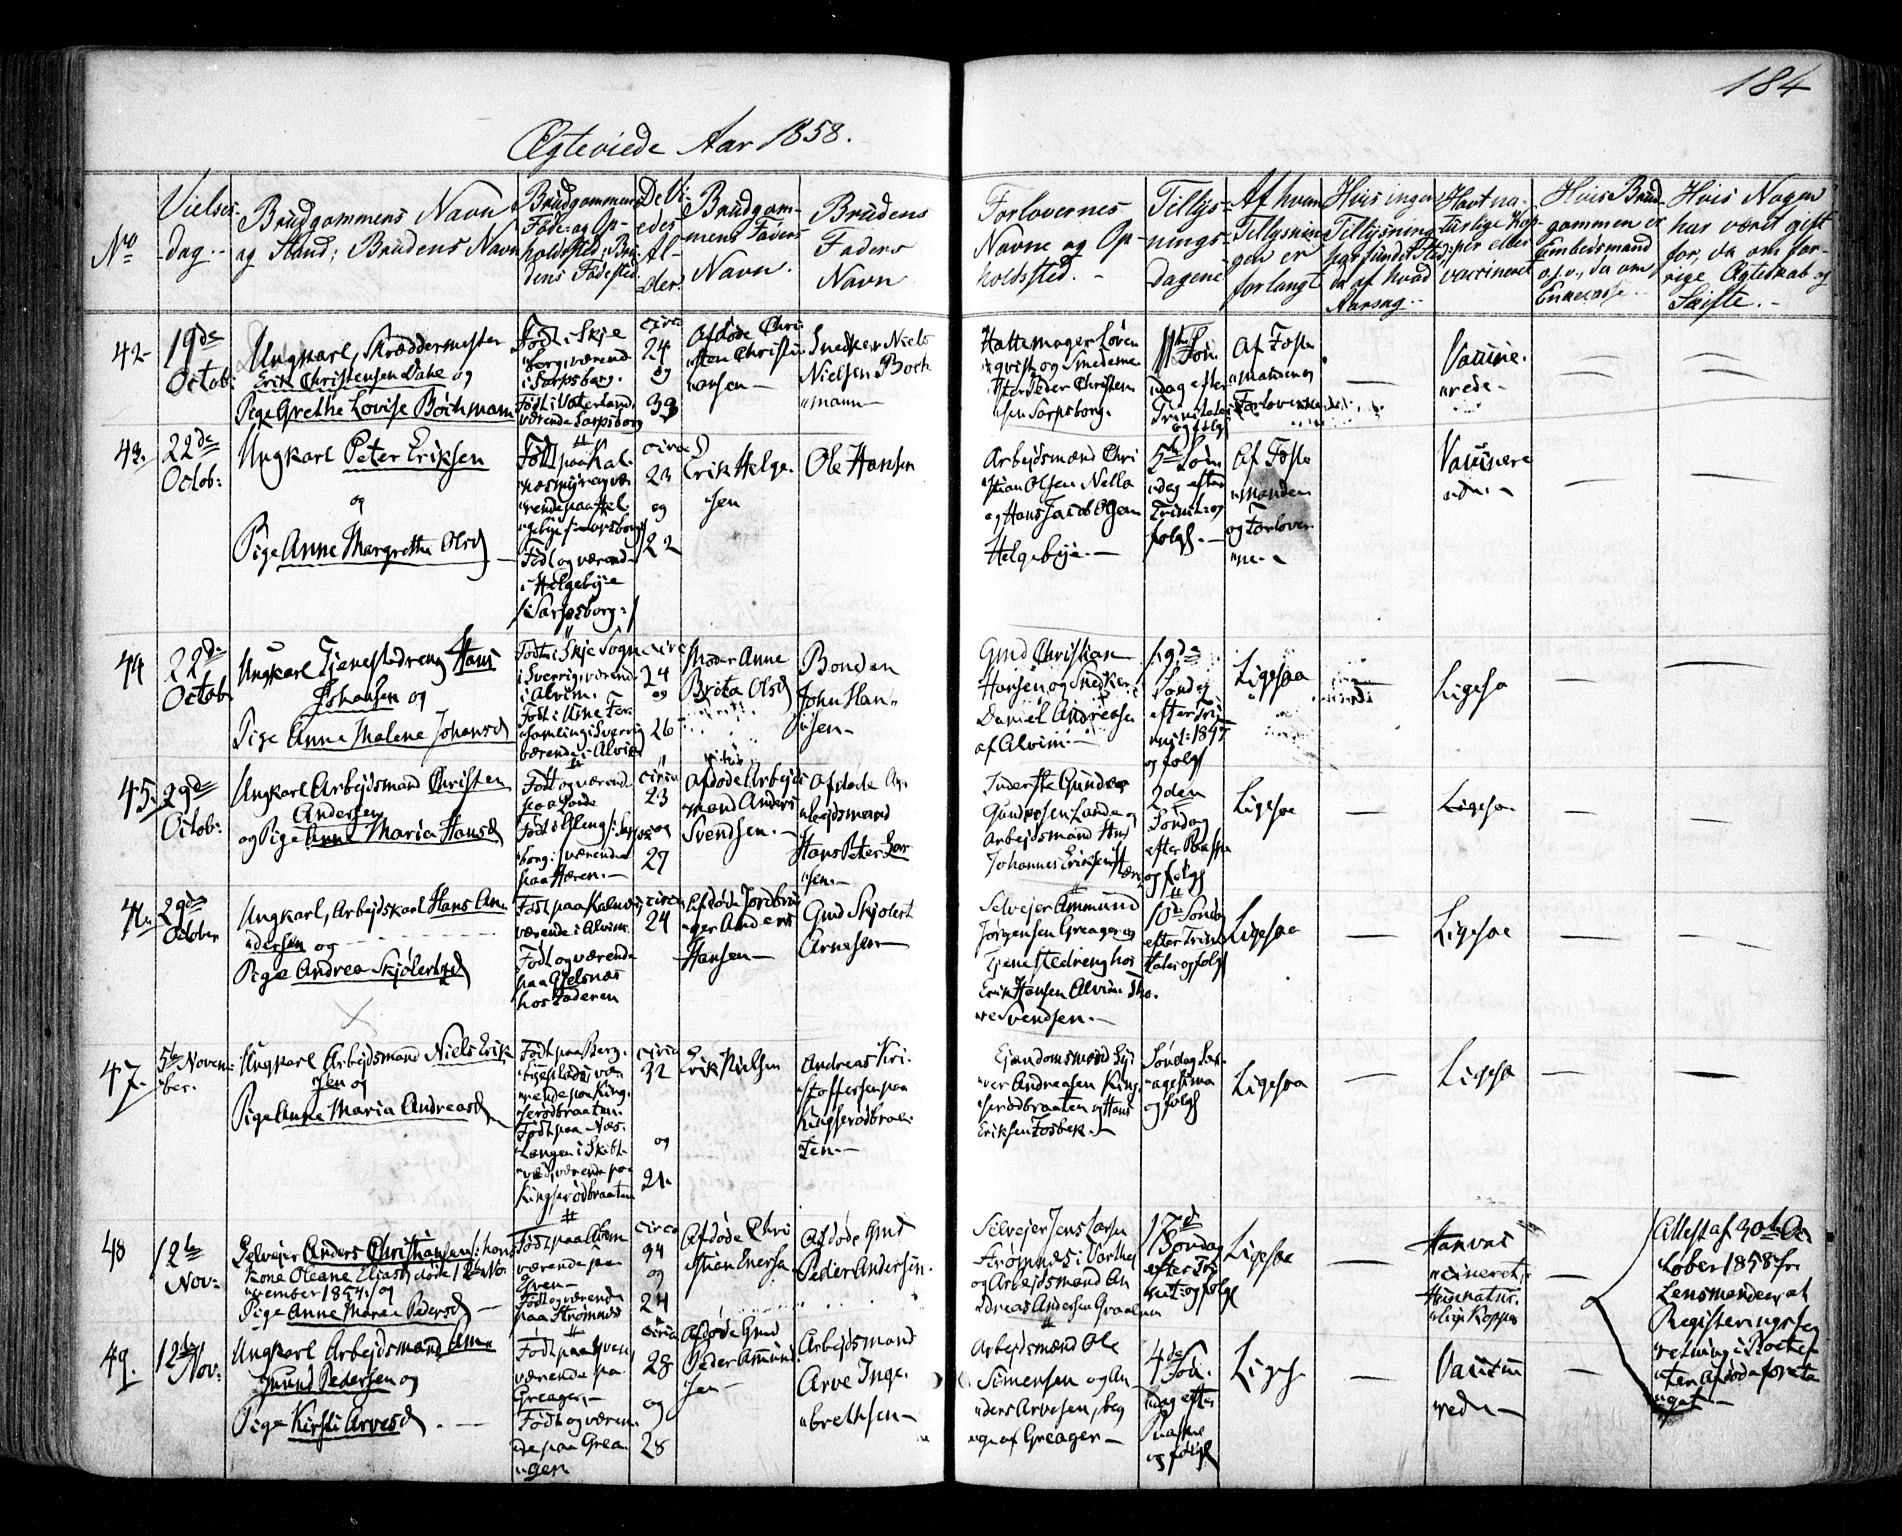 184
Ægteviede Aar 1858.
No
Vielses-
dag..
Brudgommens Navn
og Stand; Brudens Navn
Brudgommens
Føde- og Op-
holdssted, Bru-
dens Fødested
De Vi-
edes
Al-
der.
Brudgom-
mens Faders
Navn.
Brudens
Faders
Navn
Forlovernes
Navne og Op-
holdssted. -
Tillys-
nings-
Dagene
Af hvem
Tillysnin-
gen er
forlangt
Hvis ingen
Tillysning
har fundet Sted;
da af hvad
Aarsag.-
Havt na-
turlige Kop-
per eller
vaccineret
Hvis Brud-
gommen er
Embedsmand
o.s.v., da om
Enkecasse
Hvis Nogen
har været gift
før, da om for-
rige Ægteskab og
Skifte.-
42-
19de
Octob:
Ungkarl, Skræddermester
Erik Christensen Dahe og
Pige Grethe Lovise Bochmann
Født i Skje
værend
i Sarpsborg.
Født i Vaterland,
værende Sarpsborg
circa
24
og
33
Afdøde Chri
sten Christi
ansen -
Snedker Niels
Nielsen Boch
mann -
Hattemager Løven
qvist og Smedeme
ster Peder Christen
sen Sarpsborg.
11te Søn
dag efter
Trinitatis
og følg
Af Forlo
manden og
Forloverne
-
Vaccine.
rede -
43.
22de
Octob:
Ungkarl Peter Eriksen
og
Pige Anne Margrethe Olsd
Født paa Kal.
næsmyren, væ
rende paa Hel.
gebye / Sarpsborg /
Født og værend
i Helgebye
/ Sarpsborg: /
circa
23
og
22
Erik Helge.
sen
Ole Hansen
Arbejdsmænd Chri
stian Olsen Nello
og Hans Jacob Olsen
Helgebye. -
5te Søn
dag efter
Trinit: og
følg. -
Af Forlo
manden
og Forlover
ne. -
Vaccinere
ede. -
44
22de
Octob
Ungkarl Tjenestedreng Hans
Johansen og
Pige Anne Malene Johansd
Født i Skje Sogn
i Sverrig, værend
i Alvim.
circa
24
og
26
Moder Anne
Brita Olsd
Bonden
John Han
sen -
Gmd Christian
Hansen og Snedker
Daniel Andreasen
af Alvim -
Søndag
efter Tri
nit: 1857
og følg
Ligesaa
Ligesa
45.
29de
Octob:
Ungkarl Arbejdsmand Christen
Andersen
og Pige Anne Maria Hansd
Født og værend
paa Lande
Født i Gleng /: Sarps
borg: / værende
paa Hæren. -
circa
23
og
27
Afdøde Arbejds
mand Anders
Svendsen. -
Afdøde Ar
bejdsmand
Hans Peter Lar
sen. -
Inderste Gunder
Gundersen Lande og
Arbejdsmand Hans
Johannes Eriksen Hæren
2den
Søndag
efter Paaske
og følg
Ligesaa
Ligesaa
46.
29de
October
Ungkarl, Arbejdskarl Hans An
dersen og
Pige Andrea Skjølertsd
Født paa Kalnæs,
værende i Alvim
Født og værende
paa Gjelsnæs
hos Faderen
circa
24
Afdøde Jordbru
ger Anders
Hansen -
Gmd Skjølert
Arnesen -
Selvejer Ammund
Jørgensen Greager og
Tjenestedreng hos
Erik Hansen Alvim Tho.
re Svendsen. -
10de Søndag
efter Trini
tatis og følg
Ligesaa
Ligesaa
47.
5te Novem:
ber.
Ungkarl Arbejdsmand Niels Erik
sen og
Pige Anne Maria Andreasd
Født paa Berg.
værende paa King.
serødbraaten.
Født paa Næs.
Længen i Skibt.
væd, værende paa
Kingserødbraaten
circa
32
og
21.
Erik Nielsen
Andreas Kri
stoffersen paa
Kingserødbraa
ten. -
Ejendomsmænd Sy
ver Andreasen King
serødbraaten og Hans
Eriksen Fosbek. -
Søndag Sex
agesima
og følg
Ligesaa
Ligesa
48
12te
Nov:
Selvejer Anders Christiansen /: hans
Kone Oleane Eliasd døde 12te No
vember 1854 :/ og
Pige Anne Maren Pedersd -
Født paa Alvim
værende paa
Født og værende
paa Strømnæs
circa
44
og
24
Afdøde Chri
stian Enersen
Afdøde Gmd
Peder Andersen.
Selvejer Jens Larsen
Strømnæs i Varteig
og Arbejdsmand An
dreas Andersen Graalum
17de
Søndag
efter Tri
nit: og følg
Ligesaa
Han vac
cineret,
Hun natur.
lige Kopper
Attest af 30te Oc
tober 1858 fr.
Lensmanden, at
Registeringsfor
retning i Boet ef
ter Afdøde foreta
get. -
49.
12te
Nov:
Ungkarl Arbejdsmand Am
mund Pedersen og
Pige Kirsti Arvesd. -
Født paa
værende paa
Greager, -
Født og væren
de paa Grea
geren
circa
28
og
28
Afdøde Gmd
Peder Ammund
sen -
Arbejdsmand
Arve Inge.
brethsen -
Arbejdsmænd Ole
Simensen og An
ders Arvesen, beg
ge af Greager -
4de
Søn.
dag efter
Paaske
og følg
Ligesa
Vaccine
rede -